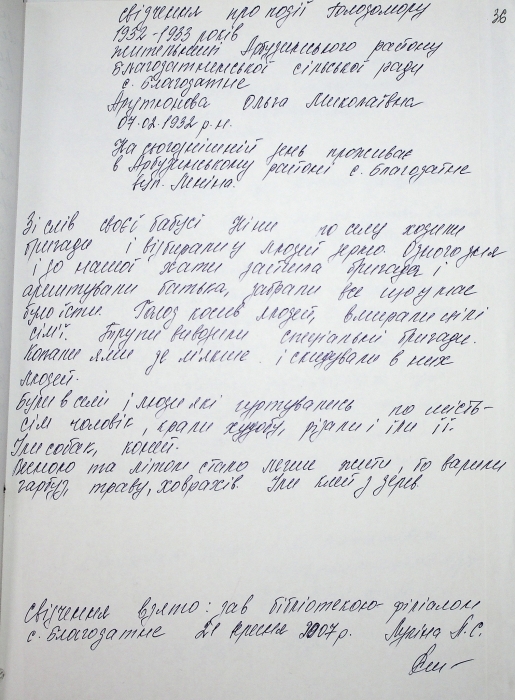 36
свідчення про події Голодомору
1932-1933 років
жительниці Арбузинського району
Благодатненської сільської ради
с. Благодатне
Арутюнова Ольга Миколаївна
07.02.1932 р.н.
На сьогоднішній день проживає
в Арбузинському районі с. Благодатне
вул. Леніна.
Зі слів своєї бабусі Ніни по селу ходили
бригади і відбирали у людей зерно. Одного дня
і до нашої хати зайшла бригада і
арештували батька, забрали все що у нас
було їсти. Голод косив людей, вмирали цілі
сім'ї. Трупи вивозили спеціальні бригади.
Копали ями де м'якше і скидували в них
людей.
Були в селі і люди які гуртувались по шість-
сім чоловік, крали худобу, різали і їли її.
Їли собак, коней.
Весною та літом стало легше жити, бо варили
гарбуз, траву, ховрахів. Їли клей з дерев.
Свідчення взято: зав бібліотекою-філіалом
с. Благодатне 21 серпня 2007 р. Луріна Л.С.